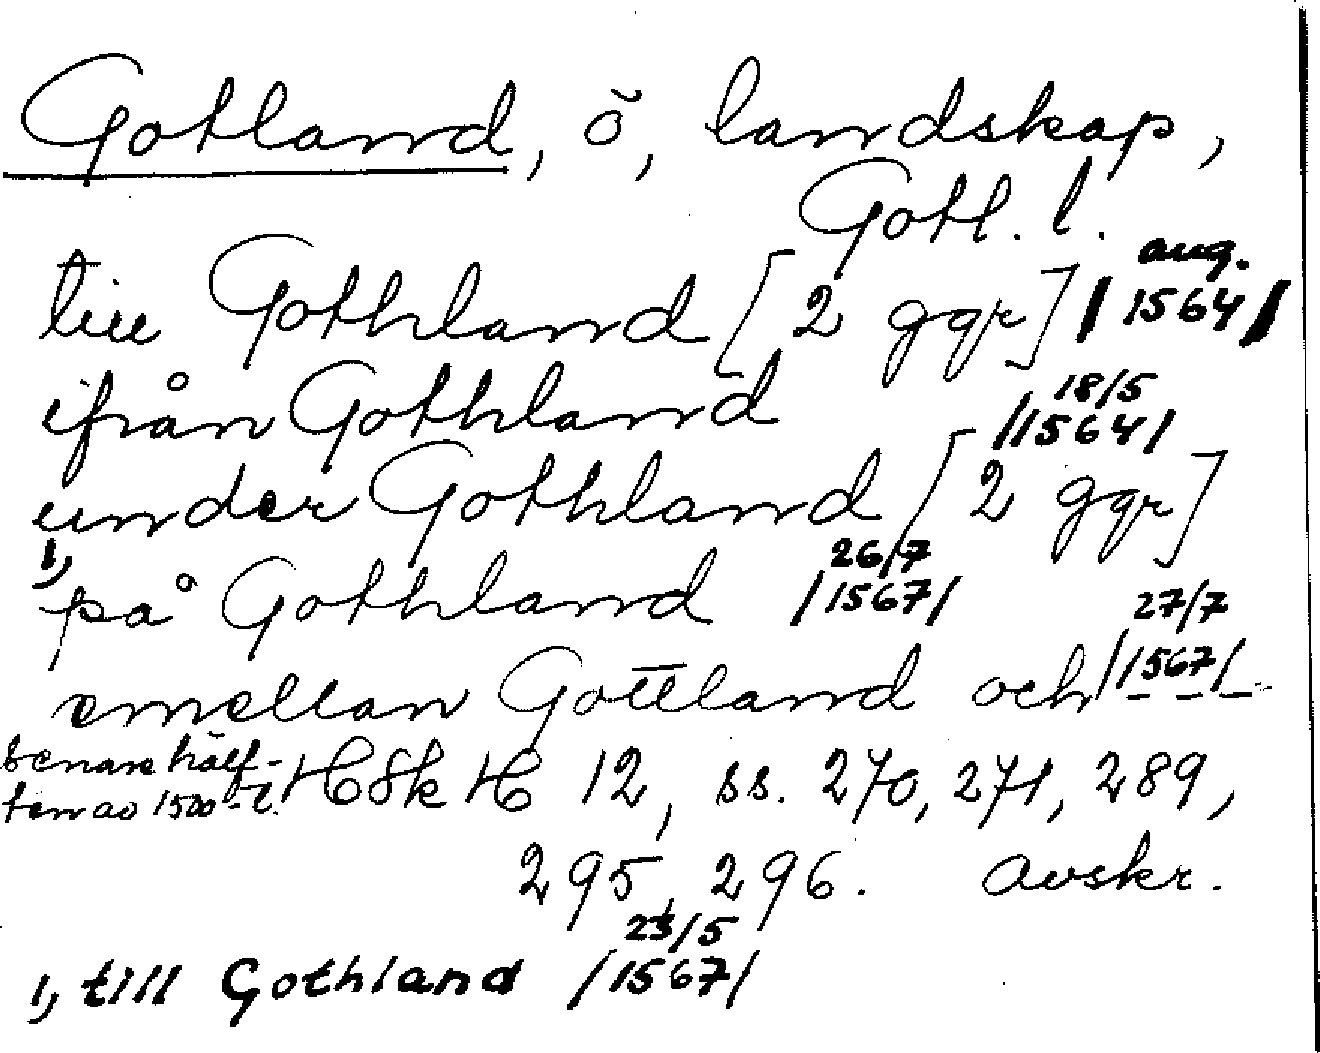 Gotland, ö, landskap,
Gotl. l.
till Gothland [2 ggr] /aug. 1564/
ifrån Gothland /18/5 1564/
under Gothland [2 ggr]
1, på Gothland /26/7 1567/
emellan Gottland och /27/7 1567/ ---
senare hälf-
ten av 1500-t. HSkH 12, ss. 270, 271, 289,
295, 296. avskr.
1, till Gothland /23/5 1567/